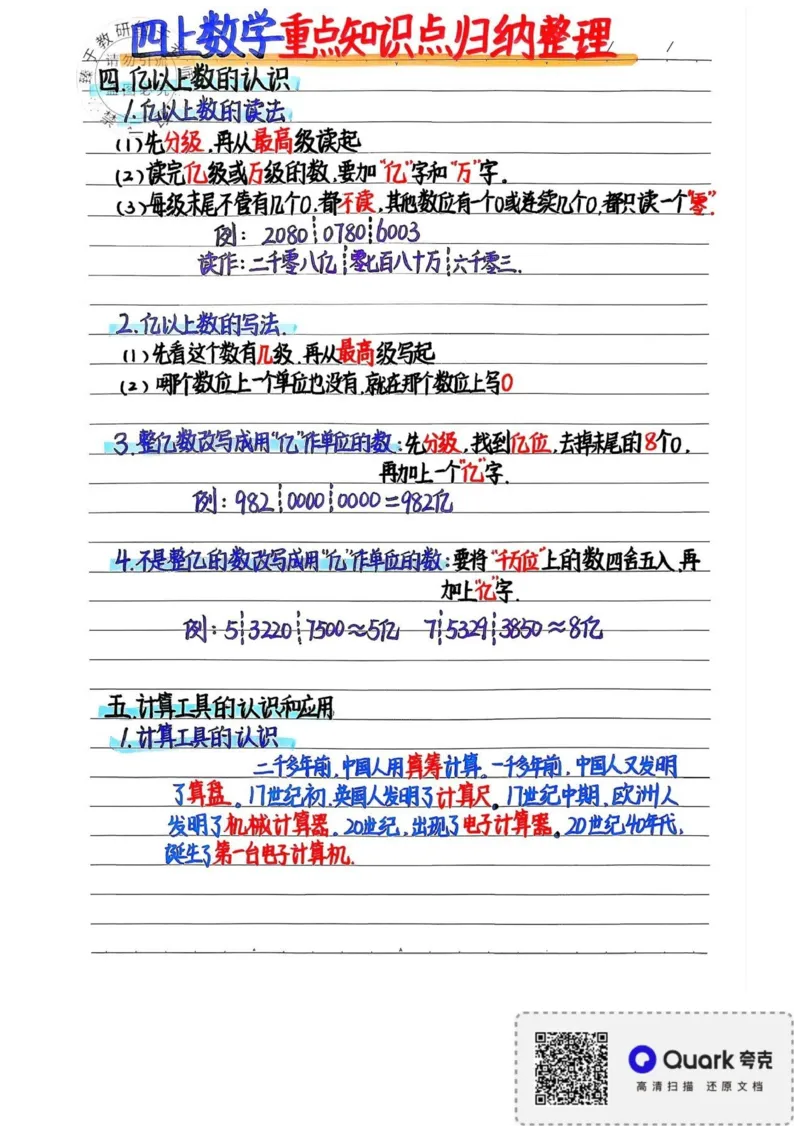 四上数学重点知识点归纳整理
四.亿以上数的认识
1.亿以上数的读法
(1)先分级,再从最高级读起
(2)读完亿级或万级的数,要加“亿”字和“万”字.
(3)每级末尾不管有几个0,都不读,其他数位有一个0或连续几个0,都只读一个“零”.
例: 2080┊0780┊6003
读作:二千零八亿┊零七百八十万┊六千零三.
2.亿以上数的写法.
(1)先看这个数有几级.再从最高级写起
(2)哪个数位上一个单位也没有.就在那个数位上写0
3.整亿数改写成用“亿”作单位的数:先分级,找到亿位,去掉末尾的8个0,
再加上一个“亿”字.
例:982┊0000┊0000=982亿
4.不是整亿的数改写成用“亿”作单位的数:要将“千万位”上的数四舍五入.再
加上“亿”字.
例:5┊3220┊7500≈5亿 7┊5329┊3850≈8亿
五.计算工具的认识和应用
1.计算工具的认识
二千多年前,中国人用算筹计算。一千多年前,中国人又发明
了算盘。17世纪初,英国人发明了计算尺。17世纪中期,欧洲人
发明了机械计算器。20世纪,出现了电子计算器。20世纪40年代,
诞生了第一台电子计算机.
Quark夸克
高清扫描 还原文档